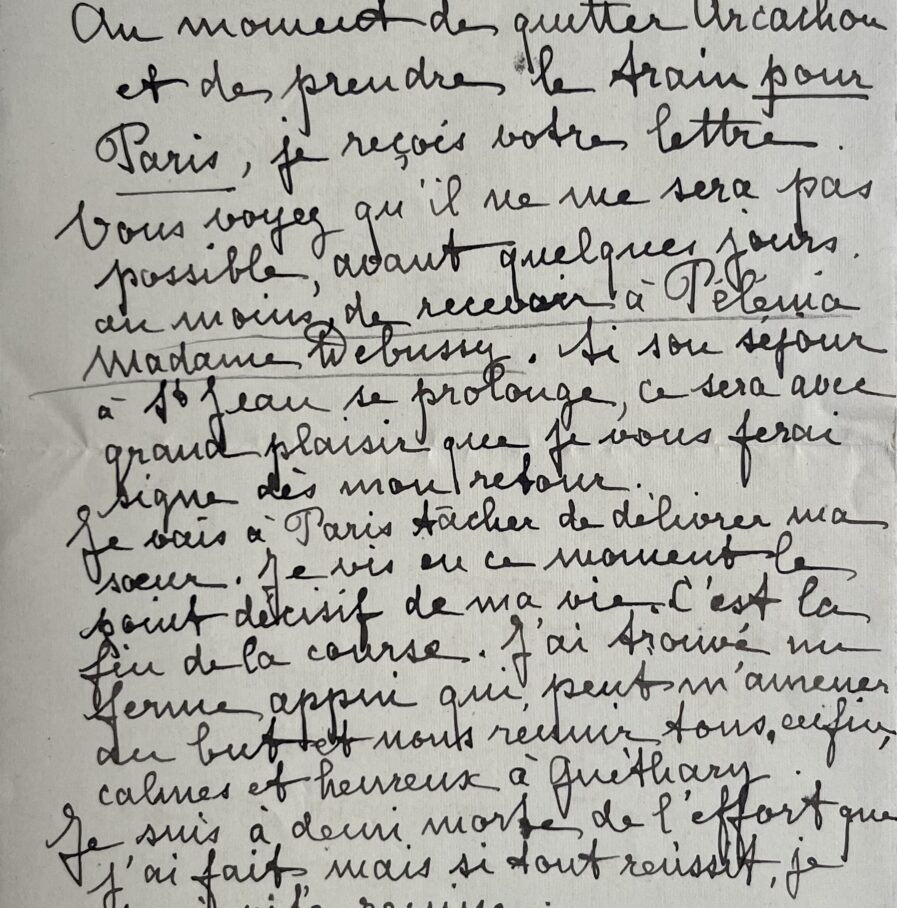 Au moment de quitter Arcachon
et de prendre le train pour
Paris, je reçois votre lettre.
Vous voyez qu'il ne me sera pas
possible, avant quelques jours
au moins, de recevoir à Pélénia
Madame Debussy. Si son séjour
à St Jean se prolonge, ce sera avec
grand plaisir que je vous ferai
signe dès mon retour.
Je vais à Paris tâcher de délivrer ma
sœur. Je vis en ce moment le
point décisif de ma vie. C'est la
fin de la course. J'ai trouvé un
ferme appui qui peut m'amener
au but et nous réunir tous, enfin,
calmes et heureux à Guéthary.
Je suis à demi morte de l'effort que
j'ai fait, mais si tout réussit, je